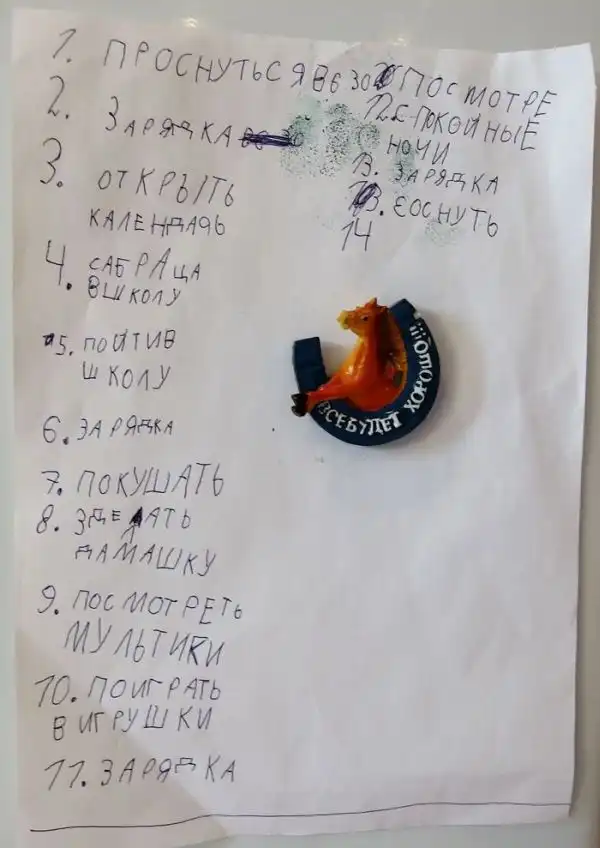 1. ПРОСНУТЬСЯ В 6 30
2. ЗАРЯДКА
3. ОТКРЫТЬ
КАЛЕНДАЯЬ
4. САБРАЦА
ВШКОЛУ
5. ПОЙТИВ
ШКОЛУ
6. ЗАРЯДКА
7. ПОКУШАТЬ
8. ЗДЕЛАТЬ
ДАМАШКУ
9. ПОСМОТРЕТЬ
МУЛЬТИКИ
10. ПОИГРАТЬ
В ИГРУШКИ
11. ЗАРЯДКА
ПОСМОТРЕ
12 СПОКОЙНЫЕ
НОЧИ
13. ЗАРЯДКА
13. ЕОСНУТЬ
14
ВСЕ БУДЕТ ХОРОШО!!!